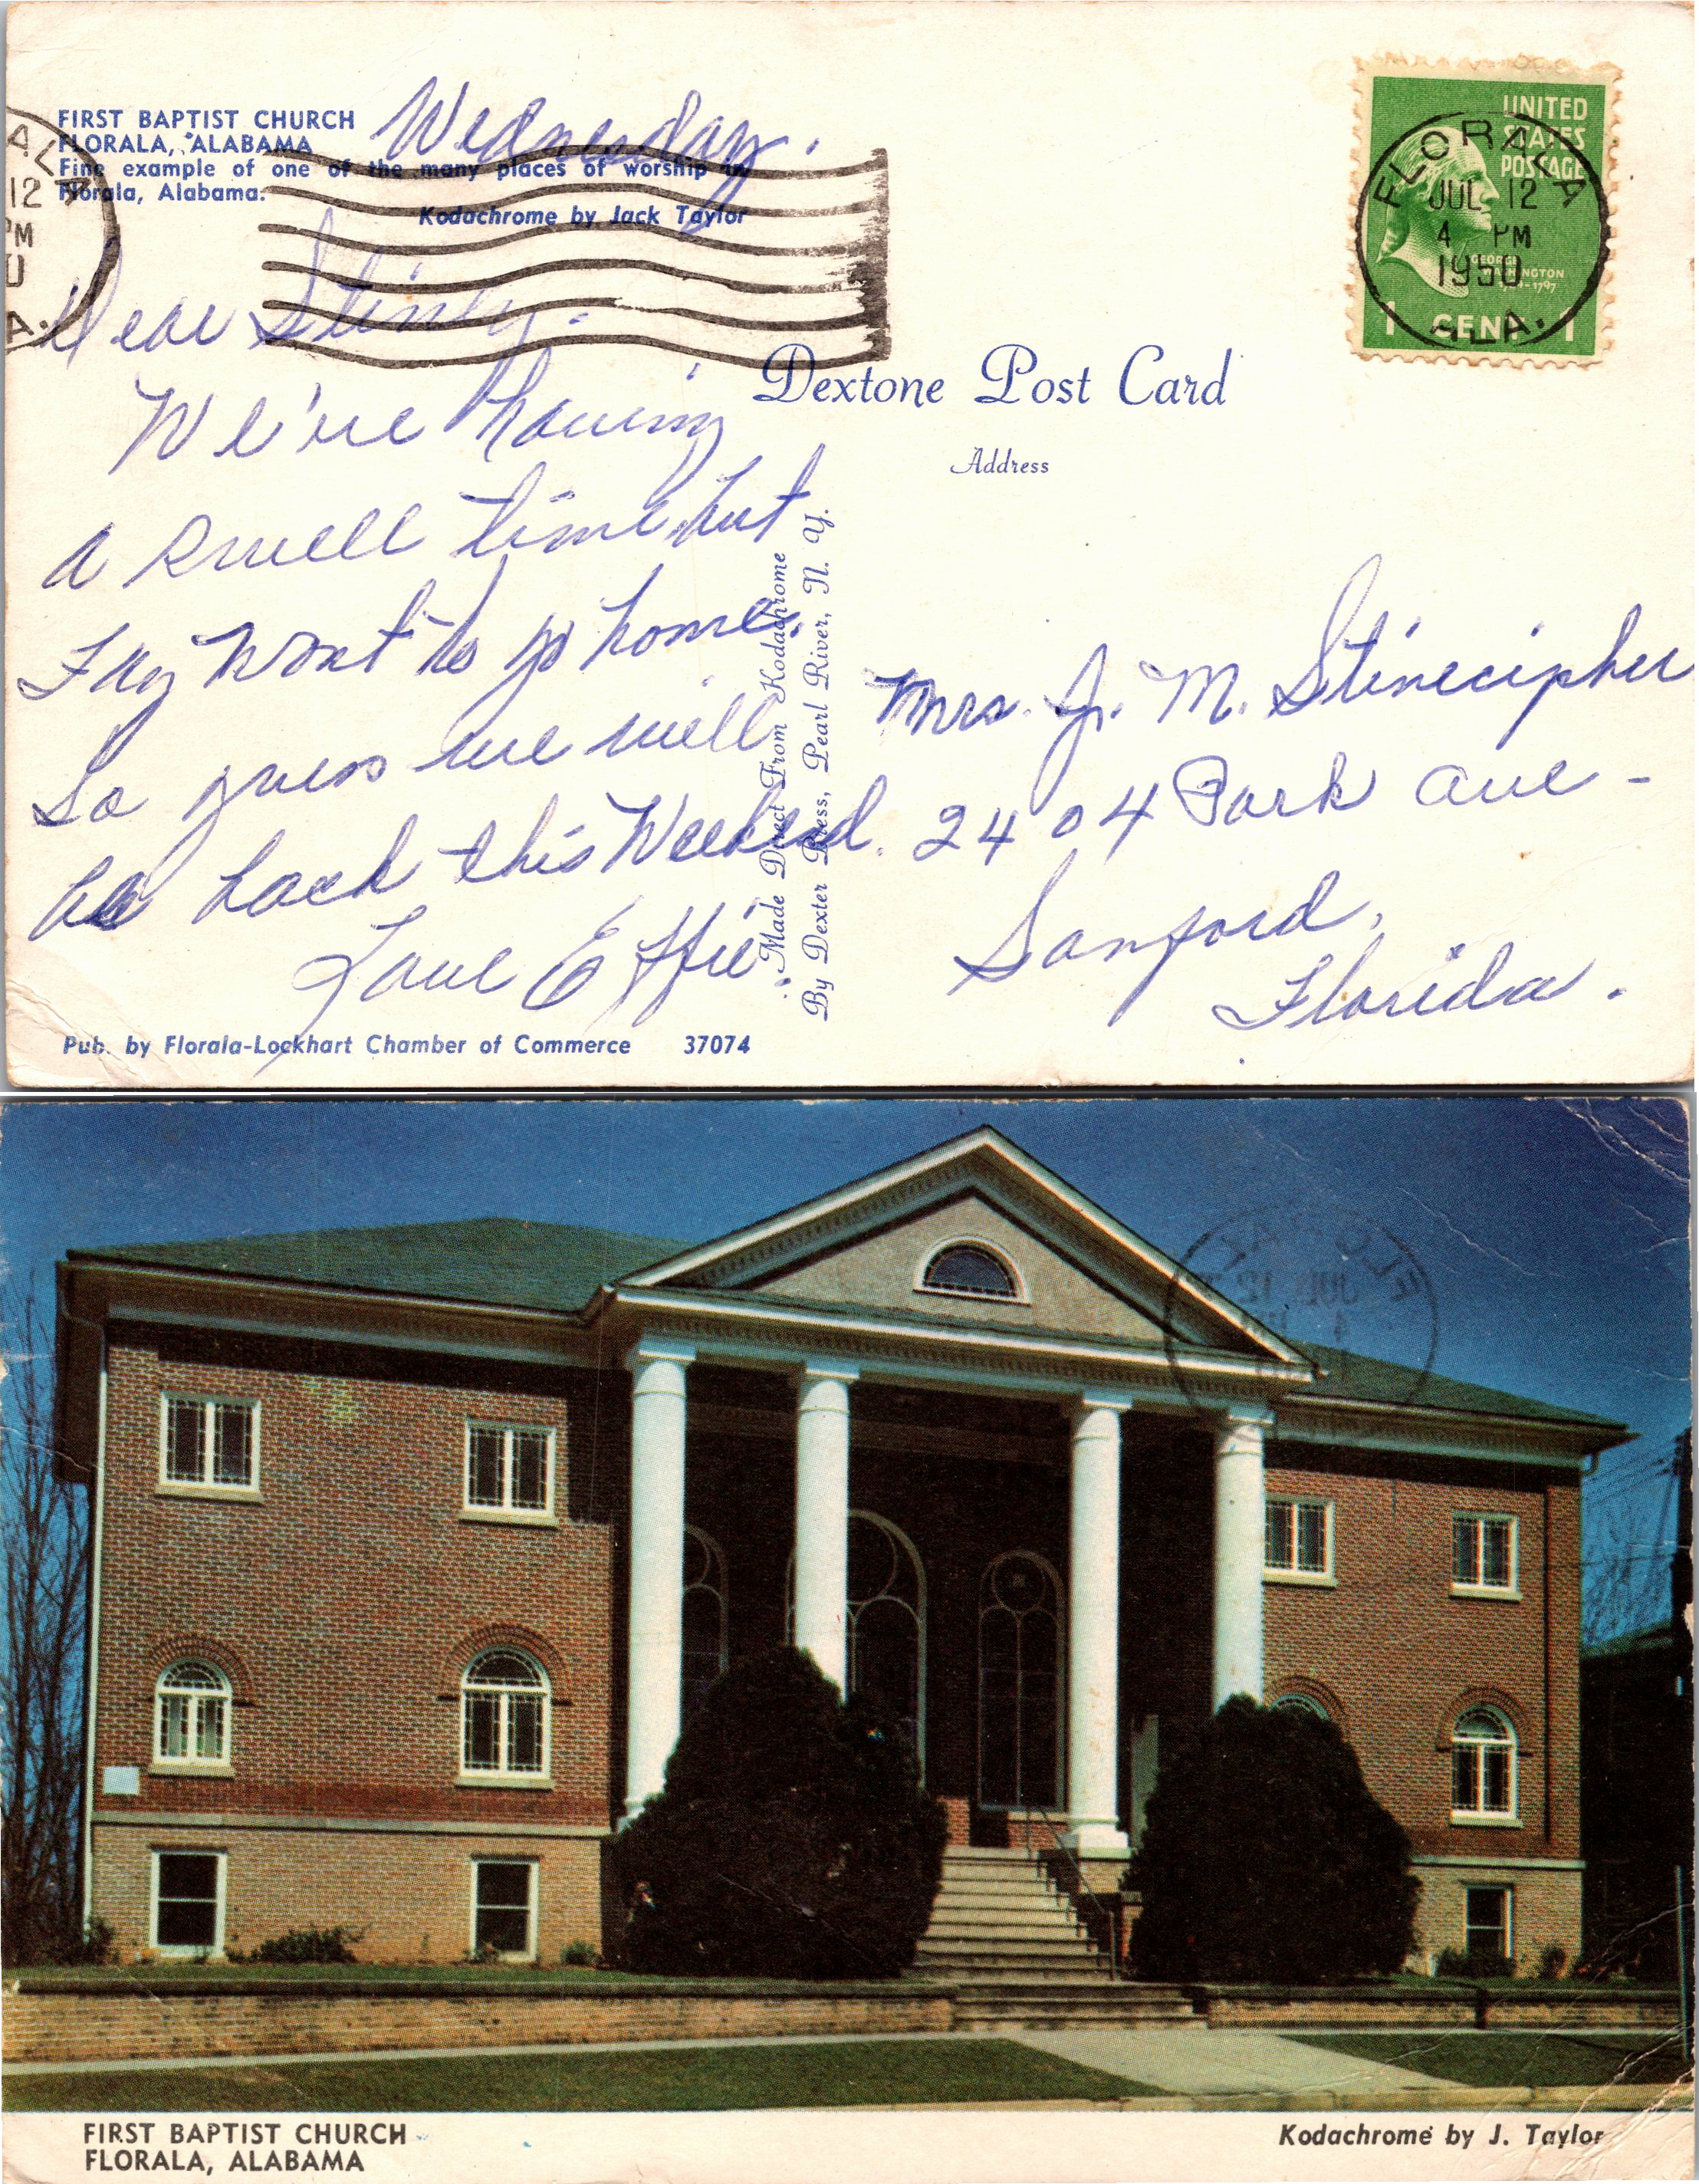 FIRST BAPTIST CHURCH
FLORALA, ALABAMA
Fine example of one of the many places of worship in
Florala, Alabama.
Kodachrome by Jack Taylor
Wednesday.
Dear
We're having
a swell time, but
Fay want to go home.
So guess we will
be back this Weekend.
Love Effie.
Pub. by Florala-Lockhart Chamber of Commerce 37074
Made Direct From Kodachrome
By Dexter Press, Pearl River, N. Y.
Dextone Post Card
Address
UNITED
STATES
POSTAGE
GEORGE
WASHINGTON
1 CENT 1
FLORALA
JUL 12
4 PM
1950
ALA.
ALA
12
PM
0
A.
Mrs. J. M. Stinecipher
2404 Park Ave -
Sanford,
Florida.
FIRST BAPTIST CHURCH
FLORALA, ALABAMA
Kodachrome by J. Taylor